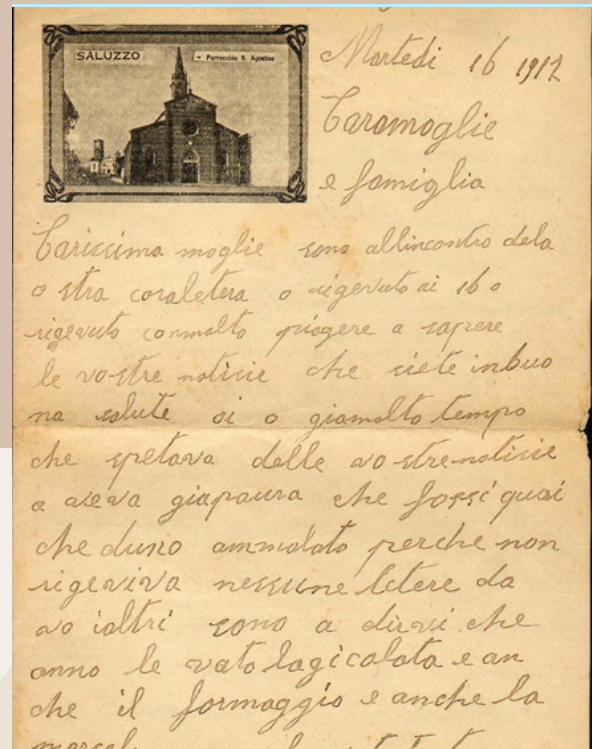 SALUZZO - Parrocchia S. Agostino
Martedi 16 1917
Caramoglie
e famiglia
Carissima moglie sono allincontro dela
vo stra coraletera o rigevuto ai 16 o
rigevuto conmolto piagere a sapere
le vo stre notisie che siete inbuo
na salute oi o giamolto tempo
che spetava delle vo strenotisie
a veva giapaura che fossi qual
che duno ammalato perche non
rigeviva nessune letere da
vo ialtri sono a dirvi che
anno le vato lagicolata e an
che il formaggio e anche la